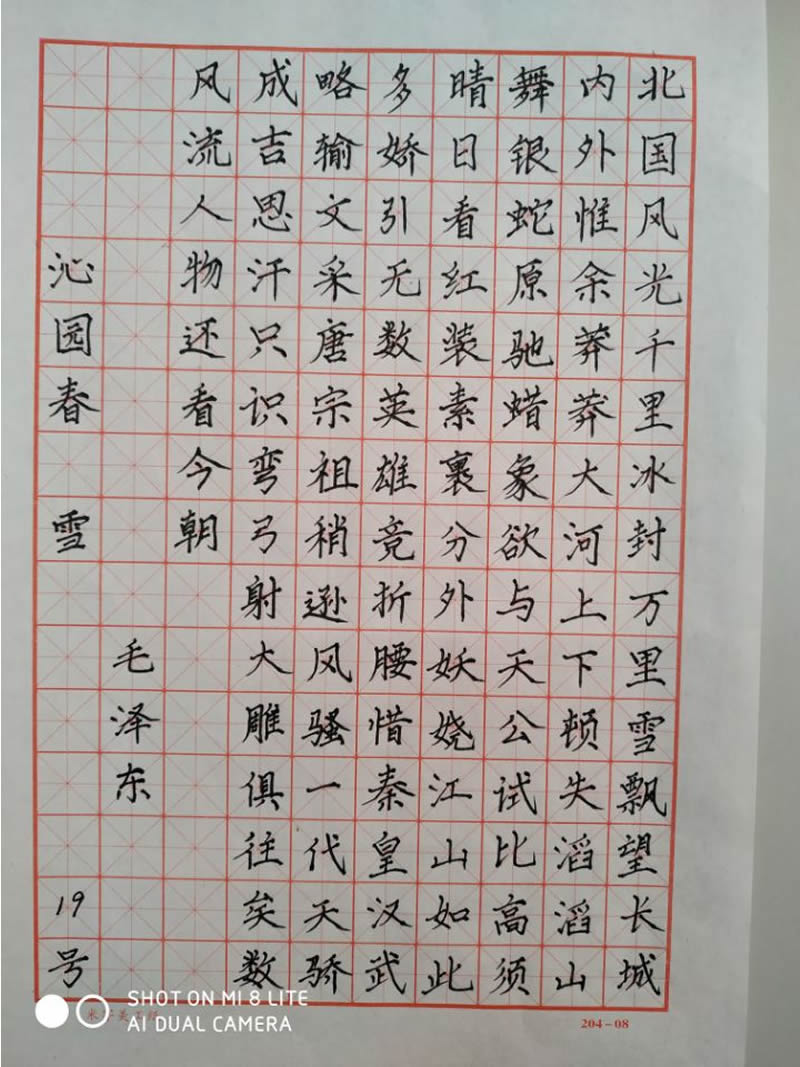 北国风光千里冰封万里雪飘望长城
内外惟余莽莽大河上下顿失滔滔山
舞银蛇原驰蜡象欲与天公试比高须
晴日看红装素裹分外妖娆江山如此
多娇引无数英雄竞折腰惜秦皇汉武
略输文采唐宗祖稍逊风骚一代天骄
成吉思汗只识弯弓射大雕俱往矣数
风流人物还看今朝
毛泽东
沁园春 雪 19号
204-08
SHOT ON MI 8 LITE
AI DUAL CAMERA